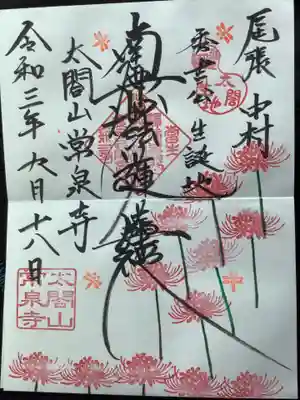 尾張中村
秀吉公生誕地
太閤
南無妙法蓮華経
太閤山常泉寺
令和三年九月十八日
太閤山
常泉寺